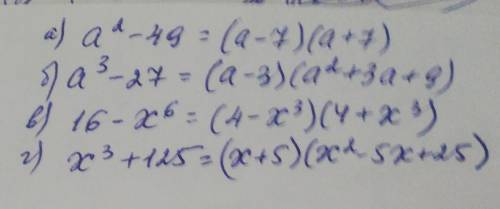 а) a² - 49 = (a - 7)(a + 7)
б) a³ - 27 = (a - 3)(a² + 3a + 9)
в) 16 - x⁶ = (4 - x³)(4 + x³)
г) x³ + 125 = (x + 5)(x² - 5x + 25)